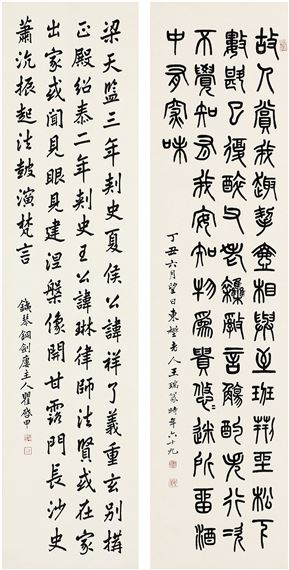 故人賞我趣挈壺相與至班荊坐松下
數斟已復醉父老雜亂言觴酌失行次
不覺知有我安知物為貴悠悠迷所留酒
中有深味
丁丑六月望日東老人王瑞篆時年六十九
梁天監三年刺史夏侯公諱祥了義重玄別搆
正殿紹泰二年刺史王公諱琳律師法賢或在家
出家或聞見眼見建涅槃像開甘露門長沙史
蕭沇振起法鼓演梵言
銕琴銅劍廔主人瞿啟甲